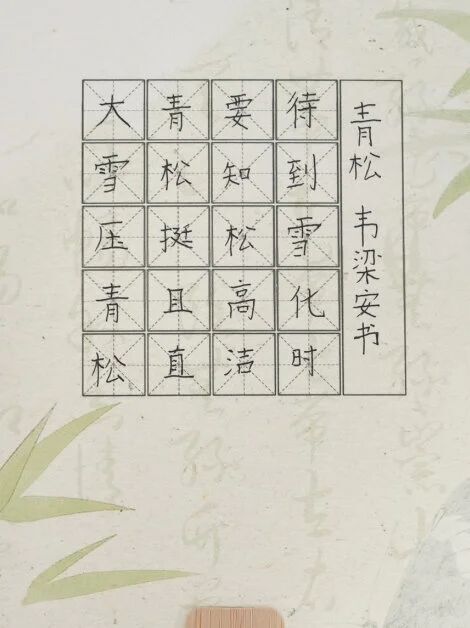 大雪压青松
青松挺且直
要知松高洁
待到雪化时
青松 韦梁安书